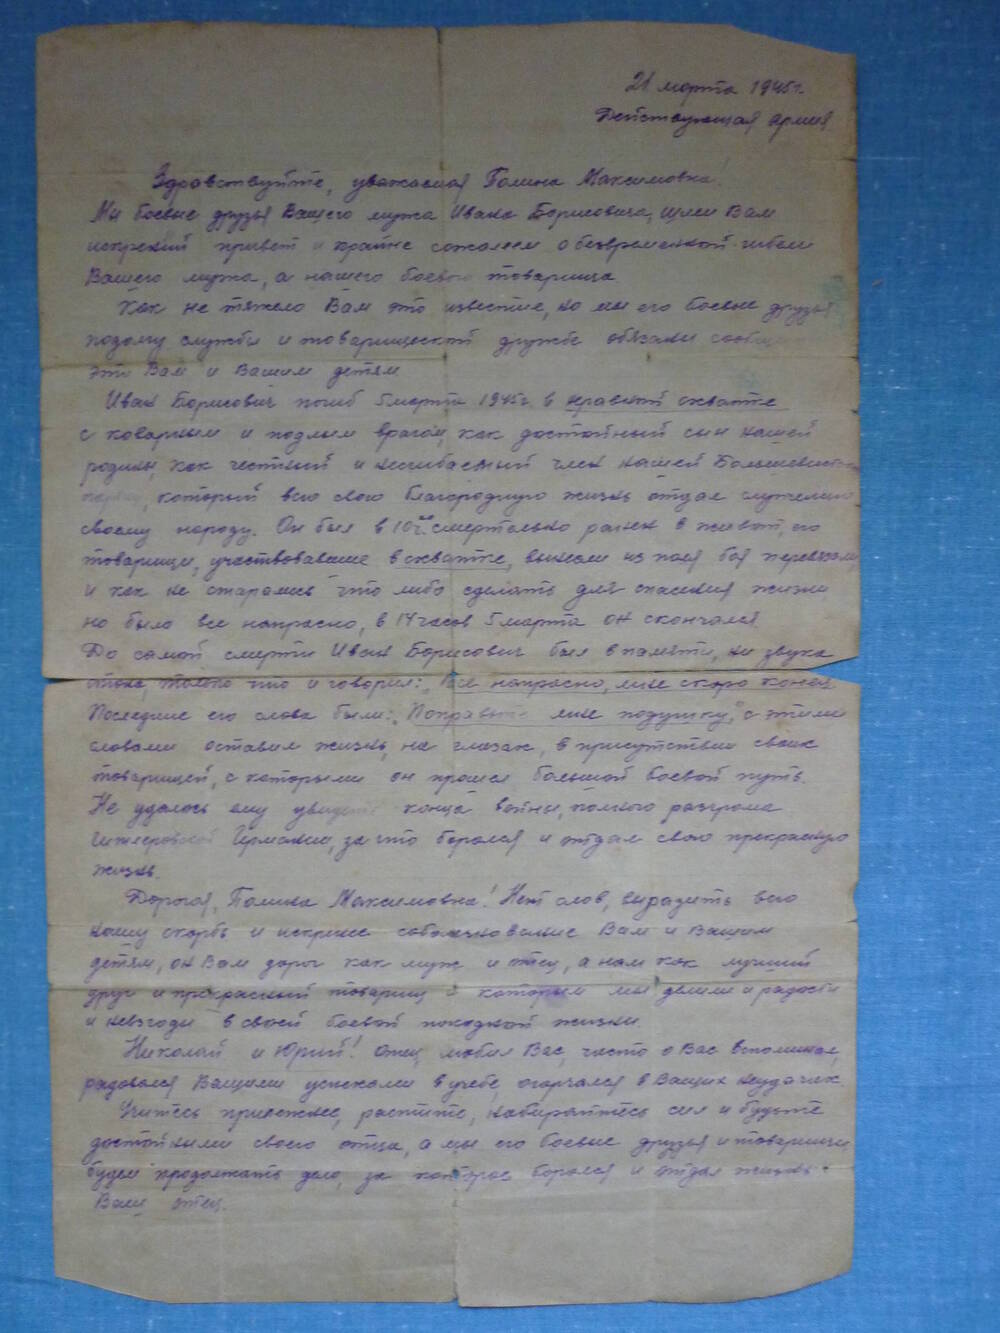 21 марта 1945 г.
Действующая армия
Здравствуйте, уважаемая Полина Максимовна!
Мы боевые друзья Вашего мужа Ивана Борисовича, шлем Вам
искренний привет и крайне сожалеем о безвременной гибели
Вашего мужа, а нашего боевого товарища.
Как не тяжело Вам это известие, но мы его боевые друзья
по долгу службы и товарищеской дружбе обязаны
это Вам и Вашим детям
Иван Борисович погиб 5 марта 1945 г. в неравной схватке
с коварным и подлым врагом, как достойный сын нашей
родины, как честный и несгибаемый член нашей
который всю свою благородную жизнь отдал служению
своему народу. Он был в 10 ч. смертельно ранен в живот, его
товарищи, участвовавшие в схватке, вынесли из поля боя перевязали
и как не старались что либо сделать для спасения жизни
но было все напрасно, в 14 часов 5 марта он скончался
До самой смерти Иван Борисович был в памяти, ни звука
стона, только что и говорил: „Все напрасно, мне скоро конец
Последние его слова были: „Поправьте мне подушку," с этими
словами оставил жизнь, на глазах, в присутствии своих
товарищей, с которыми он прошел большой боевой путь.
Не удалось ему увидеть конца войны, полного разгрома
гитлеровской Германии, за что боролся и отдал свою прекрасную
жизнь.
Дорогая, Полина Максимовна! Нет слов, выразить всю
нашу скорбь и искренне соболезнование Вам и Вашим
детям, он Вам дорог как муж и отец, а нам как лучший
друг и прекрасный товарищ с которым мы делили и радости
и невзгоды в своей боевой походной жизни.
Николай и Юрий! Отец любил Вас, часто о Вас вспоминал,
радовался Вашими успехами в учебе, огорчался в Ваших неудачах.
Учитесь прилежнее, растите, набирайтесь сил и будьте
достойными своего отца, а мы его боевые друзья и товарищи
будем продолжать дело, за которое боролся и отдал жизнь
Ваш отец.